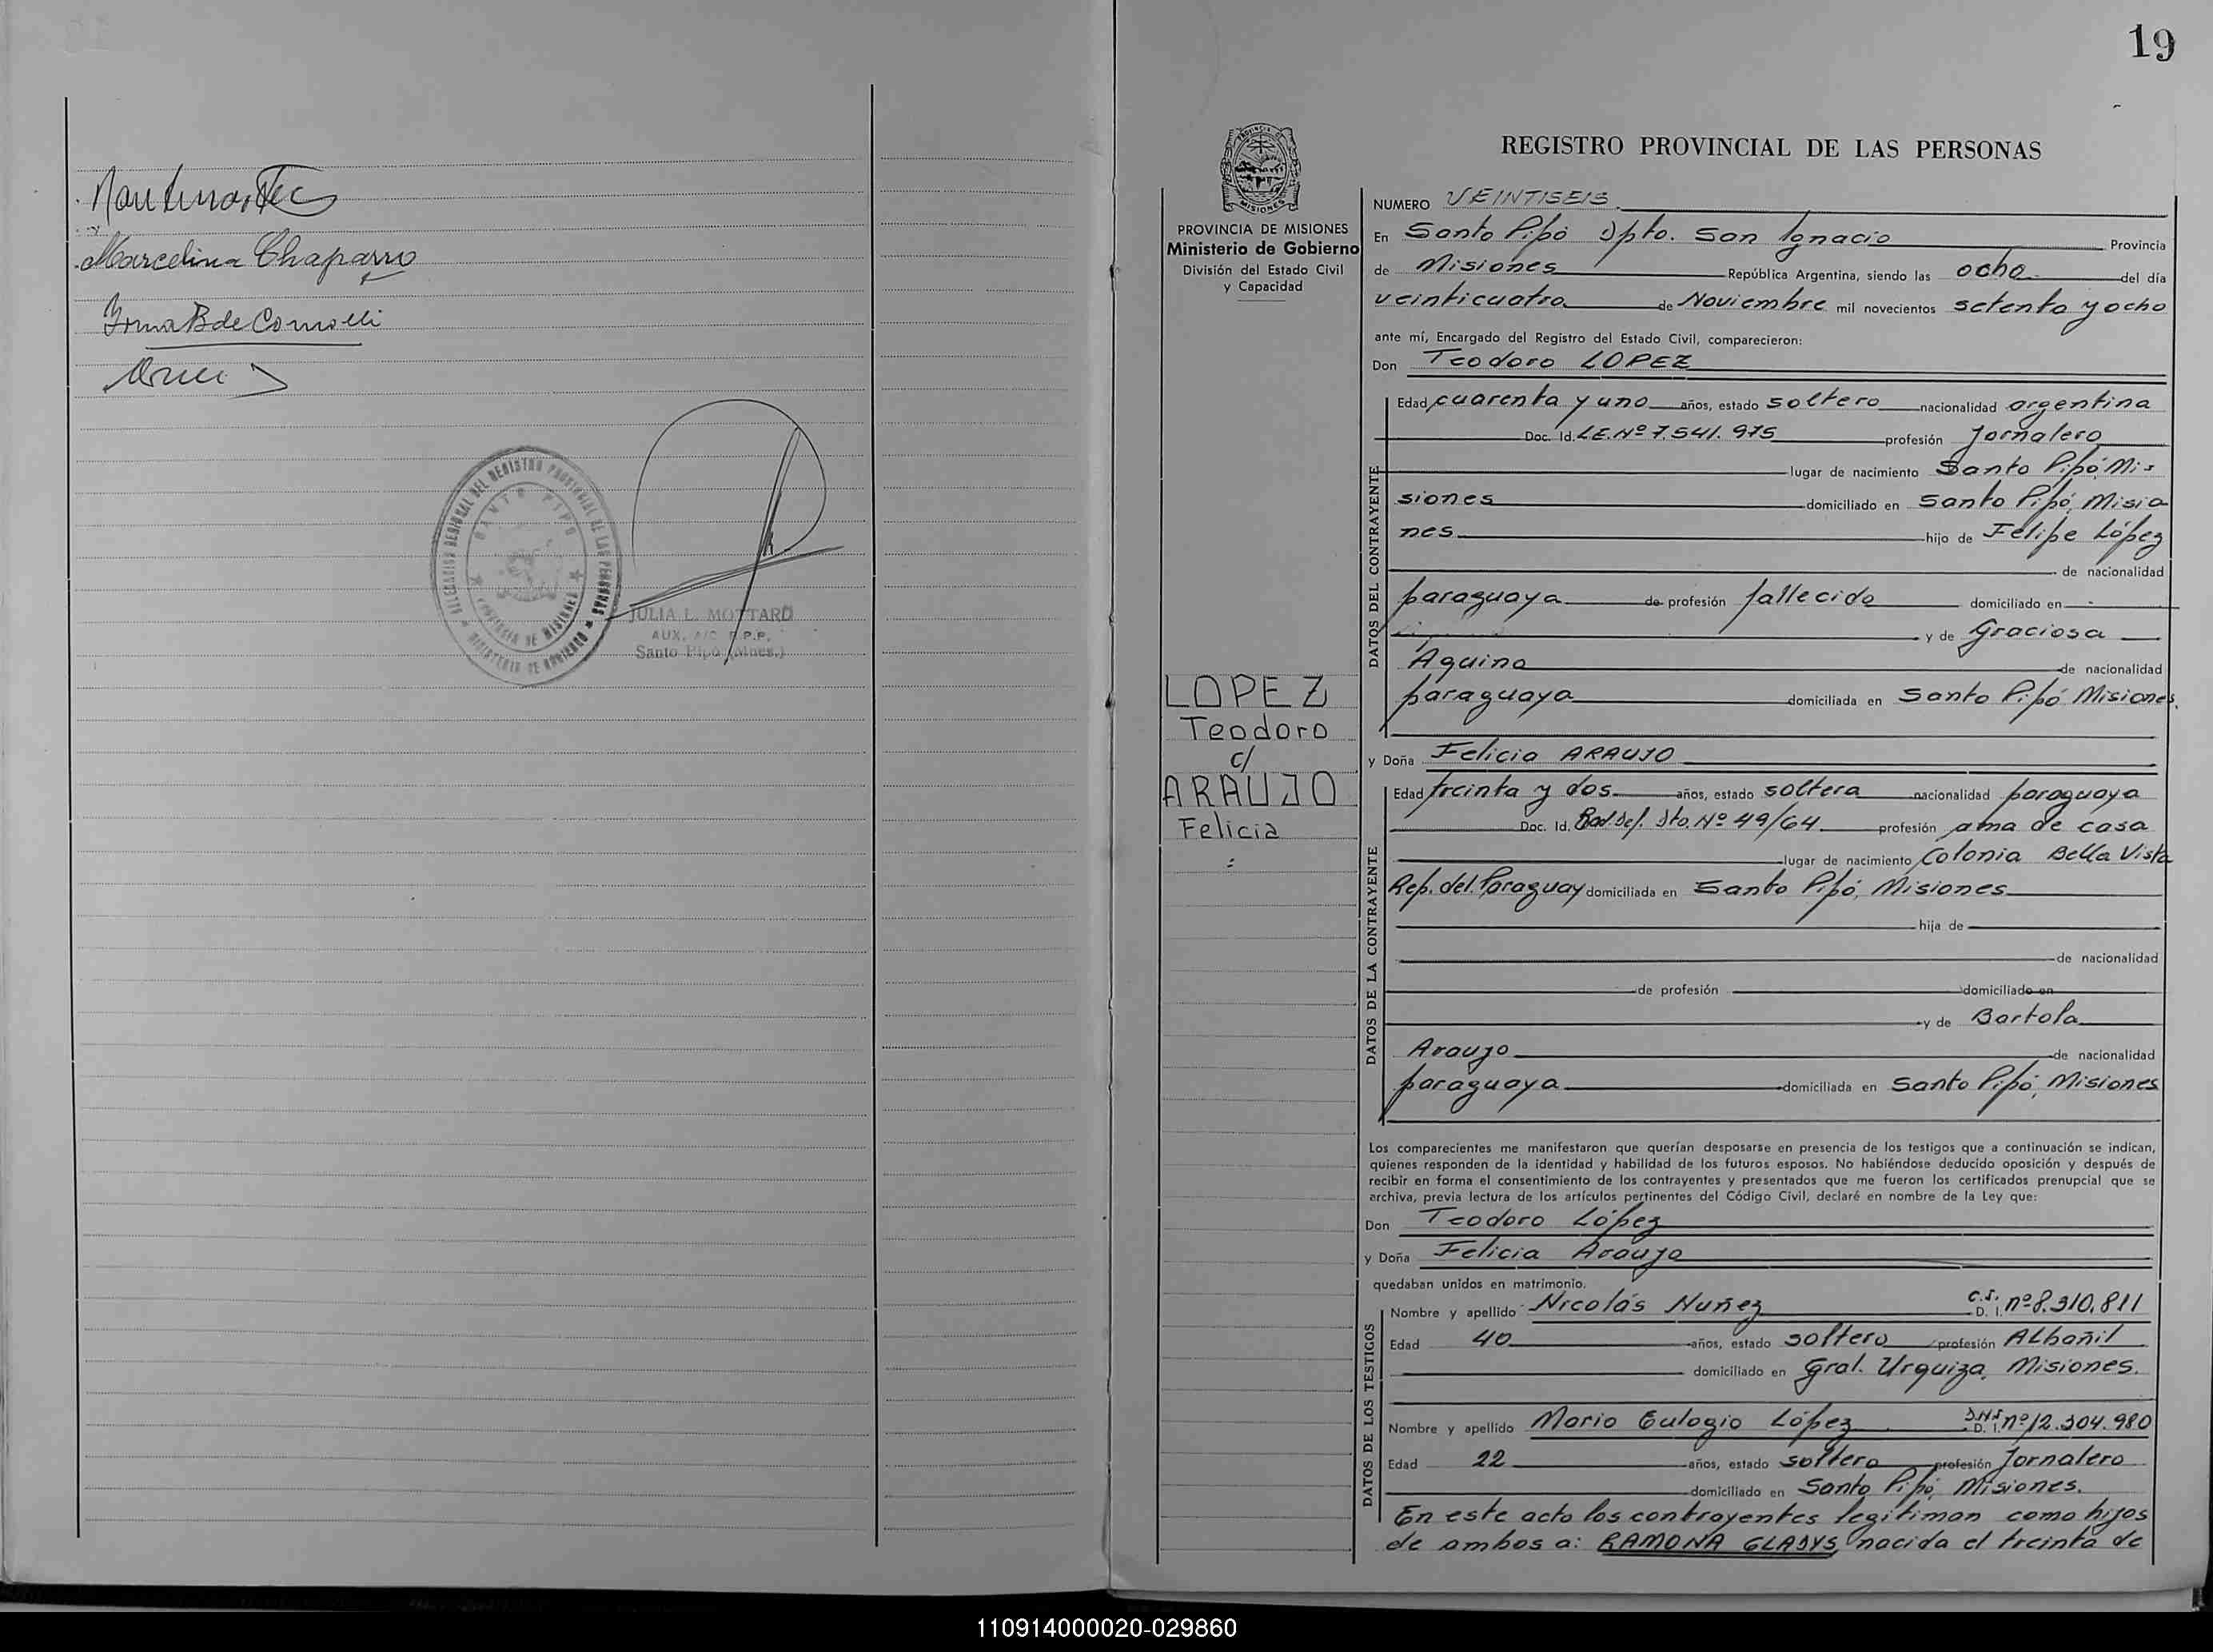 Marcelina Chaparro
Irma B de Comolli
DELEGACION REGIONAL DEL REGISTRO PROVINCIAL DE LAS PERSONAS
SANTO PIPO
PROVINCIA DE MISIONES
MINISTERIO DE GOBIERNO
JULIA L. MOTTARD
AUX. A/C R.P.P.
Santo Pipó (Mnes.)
19
PROVINCIA DE
MISIONES
PROVINCIA DE MISIONES
Ministerio de Gobierno
División del Estado Civil
y Capacidad
LOPEZ
Teodoro
c/
ARAUJO
Felicia
REGISTRO PROVINCIAL DE LAS PERSONAS
NUMERO VEINTISEIS
En Santo Pipó Dpto. San Ignacio Provincia
de Misiones República Argentina, siendo las ocho del día
veinticuatro de Noviembre mil novecientos setenta y ocho
ante mí, Encargado del Registro del Estado Civil, comparecieron:
Don Teodoro LOPEZ
DATOS DEL CONTRAYENTE
Edad cuarenta y uno años, estado soltero nacionalidad argentina
Doc. Id. LE. Nº 7.541.975 profesión Jornalero
lugar de nacimiento Santo Pipó, Mi-
siones domiciliado en Santo Pipó, Misio
nes. hijo de Felipe López
de nacionalidad
paraguaya de profesión fallecido domiciliado en
y de Graciosa
Aquino de nacionalidad
paraguaya domiciliada en Santo Pipó Misiones.
y Doña Felicia ARAUJO
DATOS DE LA CONTRAYENTE
Edad treinta y dos años, estado soltera nacionalidad paraguaya
Doc. Id. Rad. Def. Dto. Nº 49/64 profesión ama de casa
lugar de nacimiento Colonia Bella Vista
Rep. del Paraguay domiciliada en Santo Pipó, Misiones
hija de
de nacionalidad
de profesión domiciliado en
y de Bartola
Araujo de nacionalidad
paraguaya domiciliada en Santo Pipó, Misiones
Los comparecientes me manifestaron que querían desposarse en presencia de los testigos que a continuación se indican,
quienes responden de la identidad y habilidad de los futuros esposos. No habiéndose deducido oposición y después de
recibir en forma el consentimiento de los contrayentes y presentados que me fueron los certificados prenupcial que se
archiva, previa lectura de los artículos pertinentes del Código Civil, declaré en nombre de la Ley que:
Don Teodoro López
y Doña Felicia Araujo
quedaban unidos en matrimonio.
DATOS DE LOS TESTIGOS
Nombre y apellido Nicolás Nuñez C.I. D. I. nº 8.310.811
Edad 40 años, estado soltero profesión Albañil
domiciliado en Gral. Urquiza, Misiones.
Nombre y apellido Mario Eulogio López D.N.I. D. I. nº 12.304.980
Edad 22 años, estado soltero profesión Jornalero
domiciliado en Santo Pipó, Misiones.
En este acto los contrayentes legitiman como hijos
de ambos a: RAMONA GLADYS, nacida el treinta de
110914000020-029860